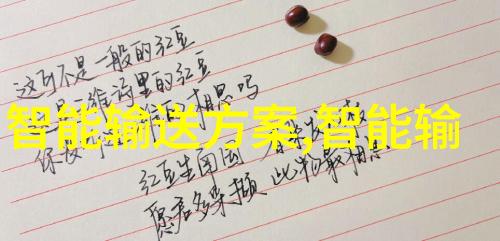 这可不是一般的红豆
是王维诗里的红豆
相思吗
智能输送方案,智能输
红豆生南国 春来发
愿君多采撷 此物最相思